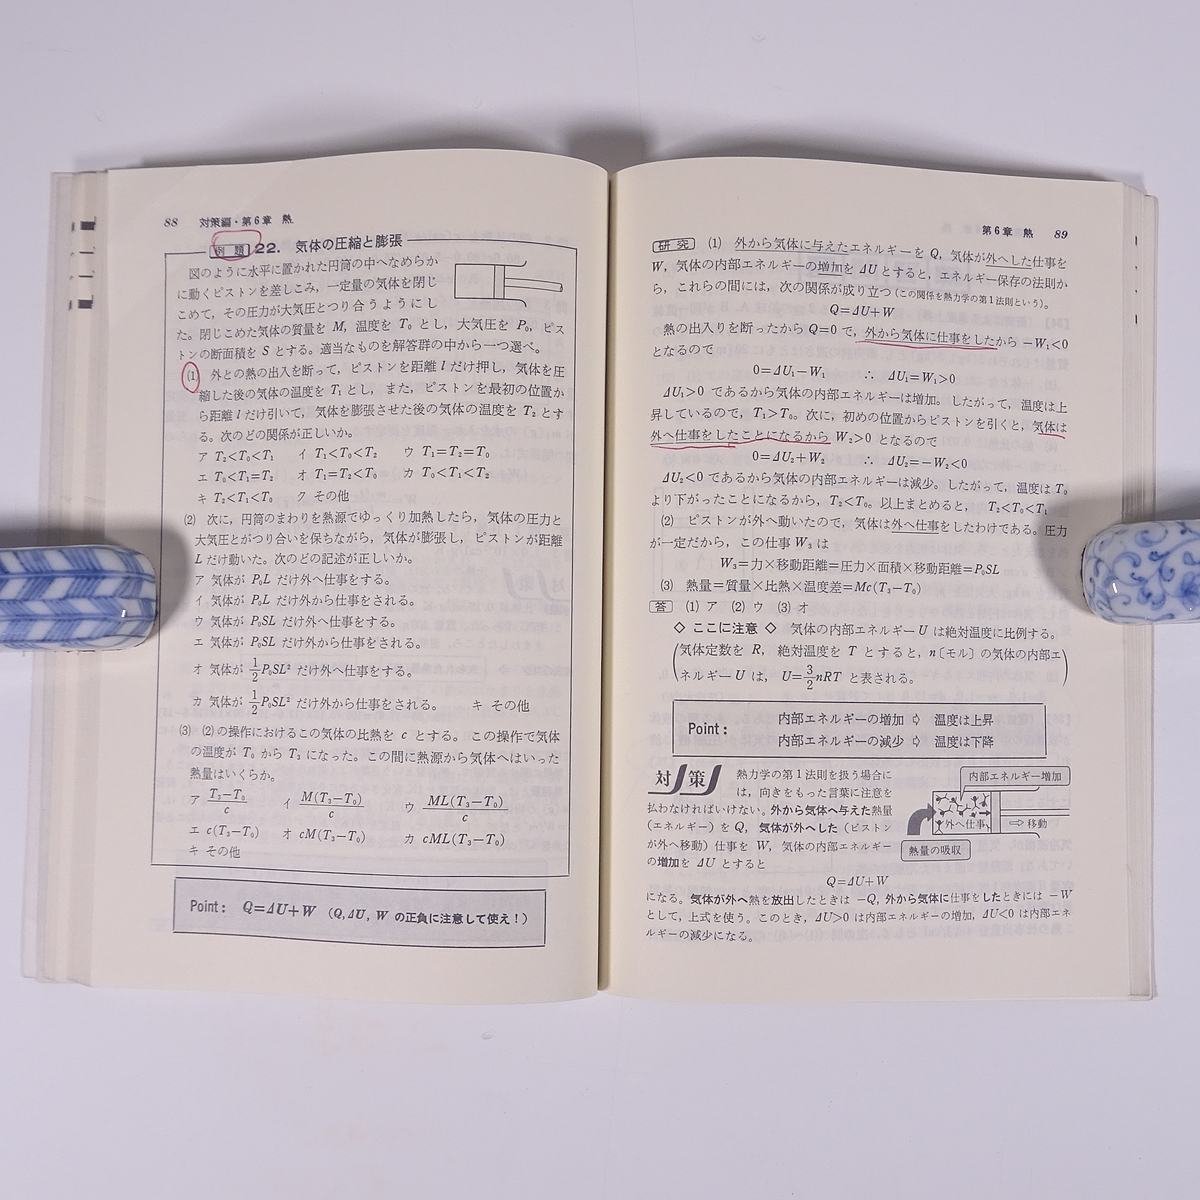 88　対策編・第6章　熱
例題 22.　気体の圧縮と膨張
図のように水平に置かれた円筒の中へなめらか
に動くピストンを差しこみ，一定量の気体を閉じ
こめて，その圧力が大気圧とつり合うようにし
た。閉じこめた気体の質量を M，温度を T₀ とし，大気圧を P₀，ピス
トンの断面積を S とする。適当なものを解答群の中から一つ選べ。
(1)　外との熱の出入を断って，ピストンを距離 l だけ押し，気体を圧
縮した後の気体の温度を T₁ とし，また，ピストンを最初の位置か
ら距離 l だけ引いて，気体を膨張させた後の気体の温度を T₂ とす
る。次のどの関係が正しいか。
ア　T₂<T₀<T₁　イ　T₁<T₀<T₂　ウ　T₁=T₂=T₀
エ　T₀<T₁=T₂　オ　T₁=T₂<T₀　カ　T₀<T₁<T₂
キ　T₂<T₁<T₀　ク　その他
(2)　次に，円筒のまわりを熱源でゆっくり加熱したら，気体の圧力と
大気圧とがつり合いを保ちながら，気体が膨張し，ピストンが距離
L だけ動いた。次のどの記述が正しいか。
ア　気体が P₀L だけ外へ仕事をする。
イ　気体が P₀L だけ外から仕事をされる。
ウ　気体が P₀SL だけ外へ仕事をする。
エ　気体が P₀SL だけ外から仕事をされる。
オ　気体が 1/2 P₀SL² だけ外へ仕事をする。
カ　気体が 1/2 P₀SL² だけ外から仕事をされる。　キ　その他
(3)　(2)の操作におけるこの気体の比熱を c とする。この操作で気体
の温度が T₀ から T₃ になった。この間に熱源から気体へはいった
熱量はいくらか。
ア　(T₃−T₀)/c　イ　M(T₃−T₀)/c　ウ　ML(T₃−T₀)/c
エ　c(T₃−T₀)　オ　cM(T₃−T₀)　カ　cML(T₃−T₀)
キ　その他
Point：　Q=ΔU+W　(Q, ΔU, W の正負に注意して使え！)
第6章　熱　89
研究　(1)　外から気体に与えたエネルギーを Q，気体が外へした仕事を
W，気体の内部エネルギーの増加を ΔU とすると，エネルギー保存の法則か
ら，これらの間には，次の関係が成り立つ(この関係を熱力学の第1法則という)。
Q=ΔU+W
熱の出入りを断ったから Q=0 で，外から気体に仕事をしたから −W₁<0
となるので
0=ΔU₁−W₁　∴　ΔU₁=W₁>0
ΔU₁>0 であるから気体の内部エネルギーは増加。したがって，温度は上
昇しているので，T₁>T₀。次に，初めの位置からピストンを引くと，気体は
外へ仕事をしたことになるから W₂>0 となるので
0=ΔU₂+W₂　∴　ΔU₂=−W₂<0
ΔU₂<0 であるから気体の内部エネルギーは減少。したがって，温度は T₀
より下がったことになるから，T₂<T₀。以上まとめると，T₂<T₀<T₁
(2)　ピストンが外へ動いたので，気体は外へ仕事をしたわけである。圧力
が一定だから，この仕事 W₃ は
W₃=力×移動距離=圧力×面積×移動距離=P₀SL
(3)　熱量=質量×比熱×温度差=Mc(T₃−T₀)
答　(1) ア　(2) ウ　(3) オ
◇ ここに注意 ◇　気体の内部エネルギー U は絶対温度に比例する。
(気体定数を R，絶対温度を T とすると，n〔モル〕の気体の内部エ
ネルギー U は，U=3/2 nRT と表される。)
Point：　内部エネルギーの増加 ⇨ 温度は上昇
内部エネルギーの減少 ⇨ 温度は下降
対策　熱力学の第1法則を扱う場合に
は，向きをもった言葉に注意を
払わなければいけない。外から気体へ与えた熱量
(エネルギー) を Q，気体が外へした (ピストン
が外へ移動) 仕事を W，気体の内部エネルギー
の増加を ΔU とすると
内部エネルギー増加
外へ仕事
⇨ 移動
熱量の吸収
Q=ΔU+W
になる。気体が外へ熱を放出したときは −Q，外から気体に仕事をしたときには −W
として，上式を使う。このとき，ΔU>0 は内部エネルギーの増加，ΔU<0 は内部エネ
ルギーの減少になる。